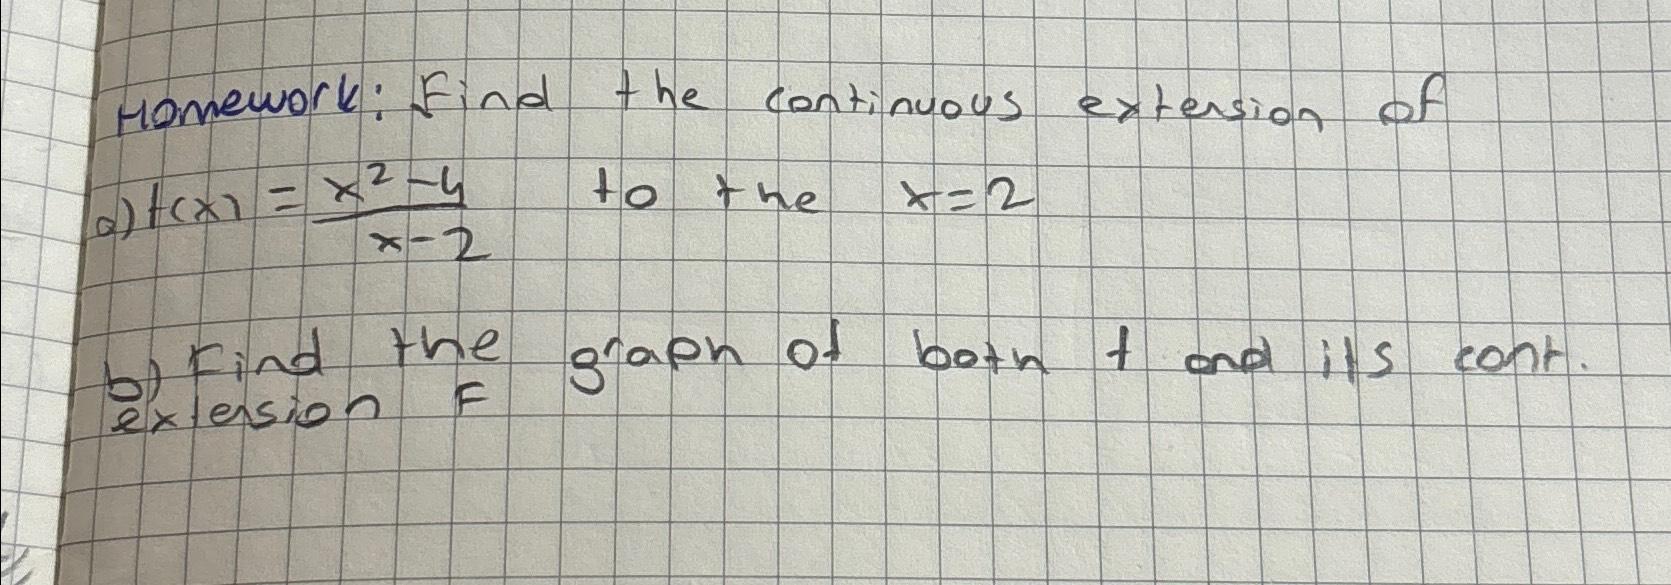 Homework: Find the continuous extension of
a) f(x) = x² - 4 / x - 2 to the x = 2
b) Find the graph of both f and its cont.
extension F